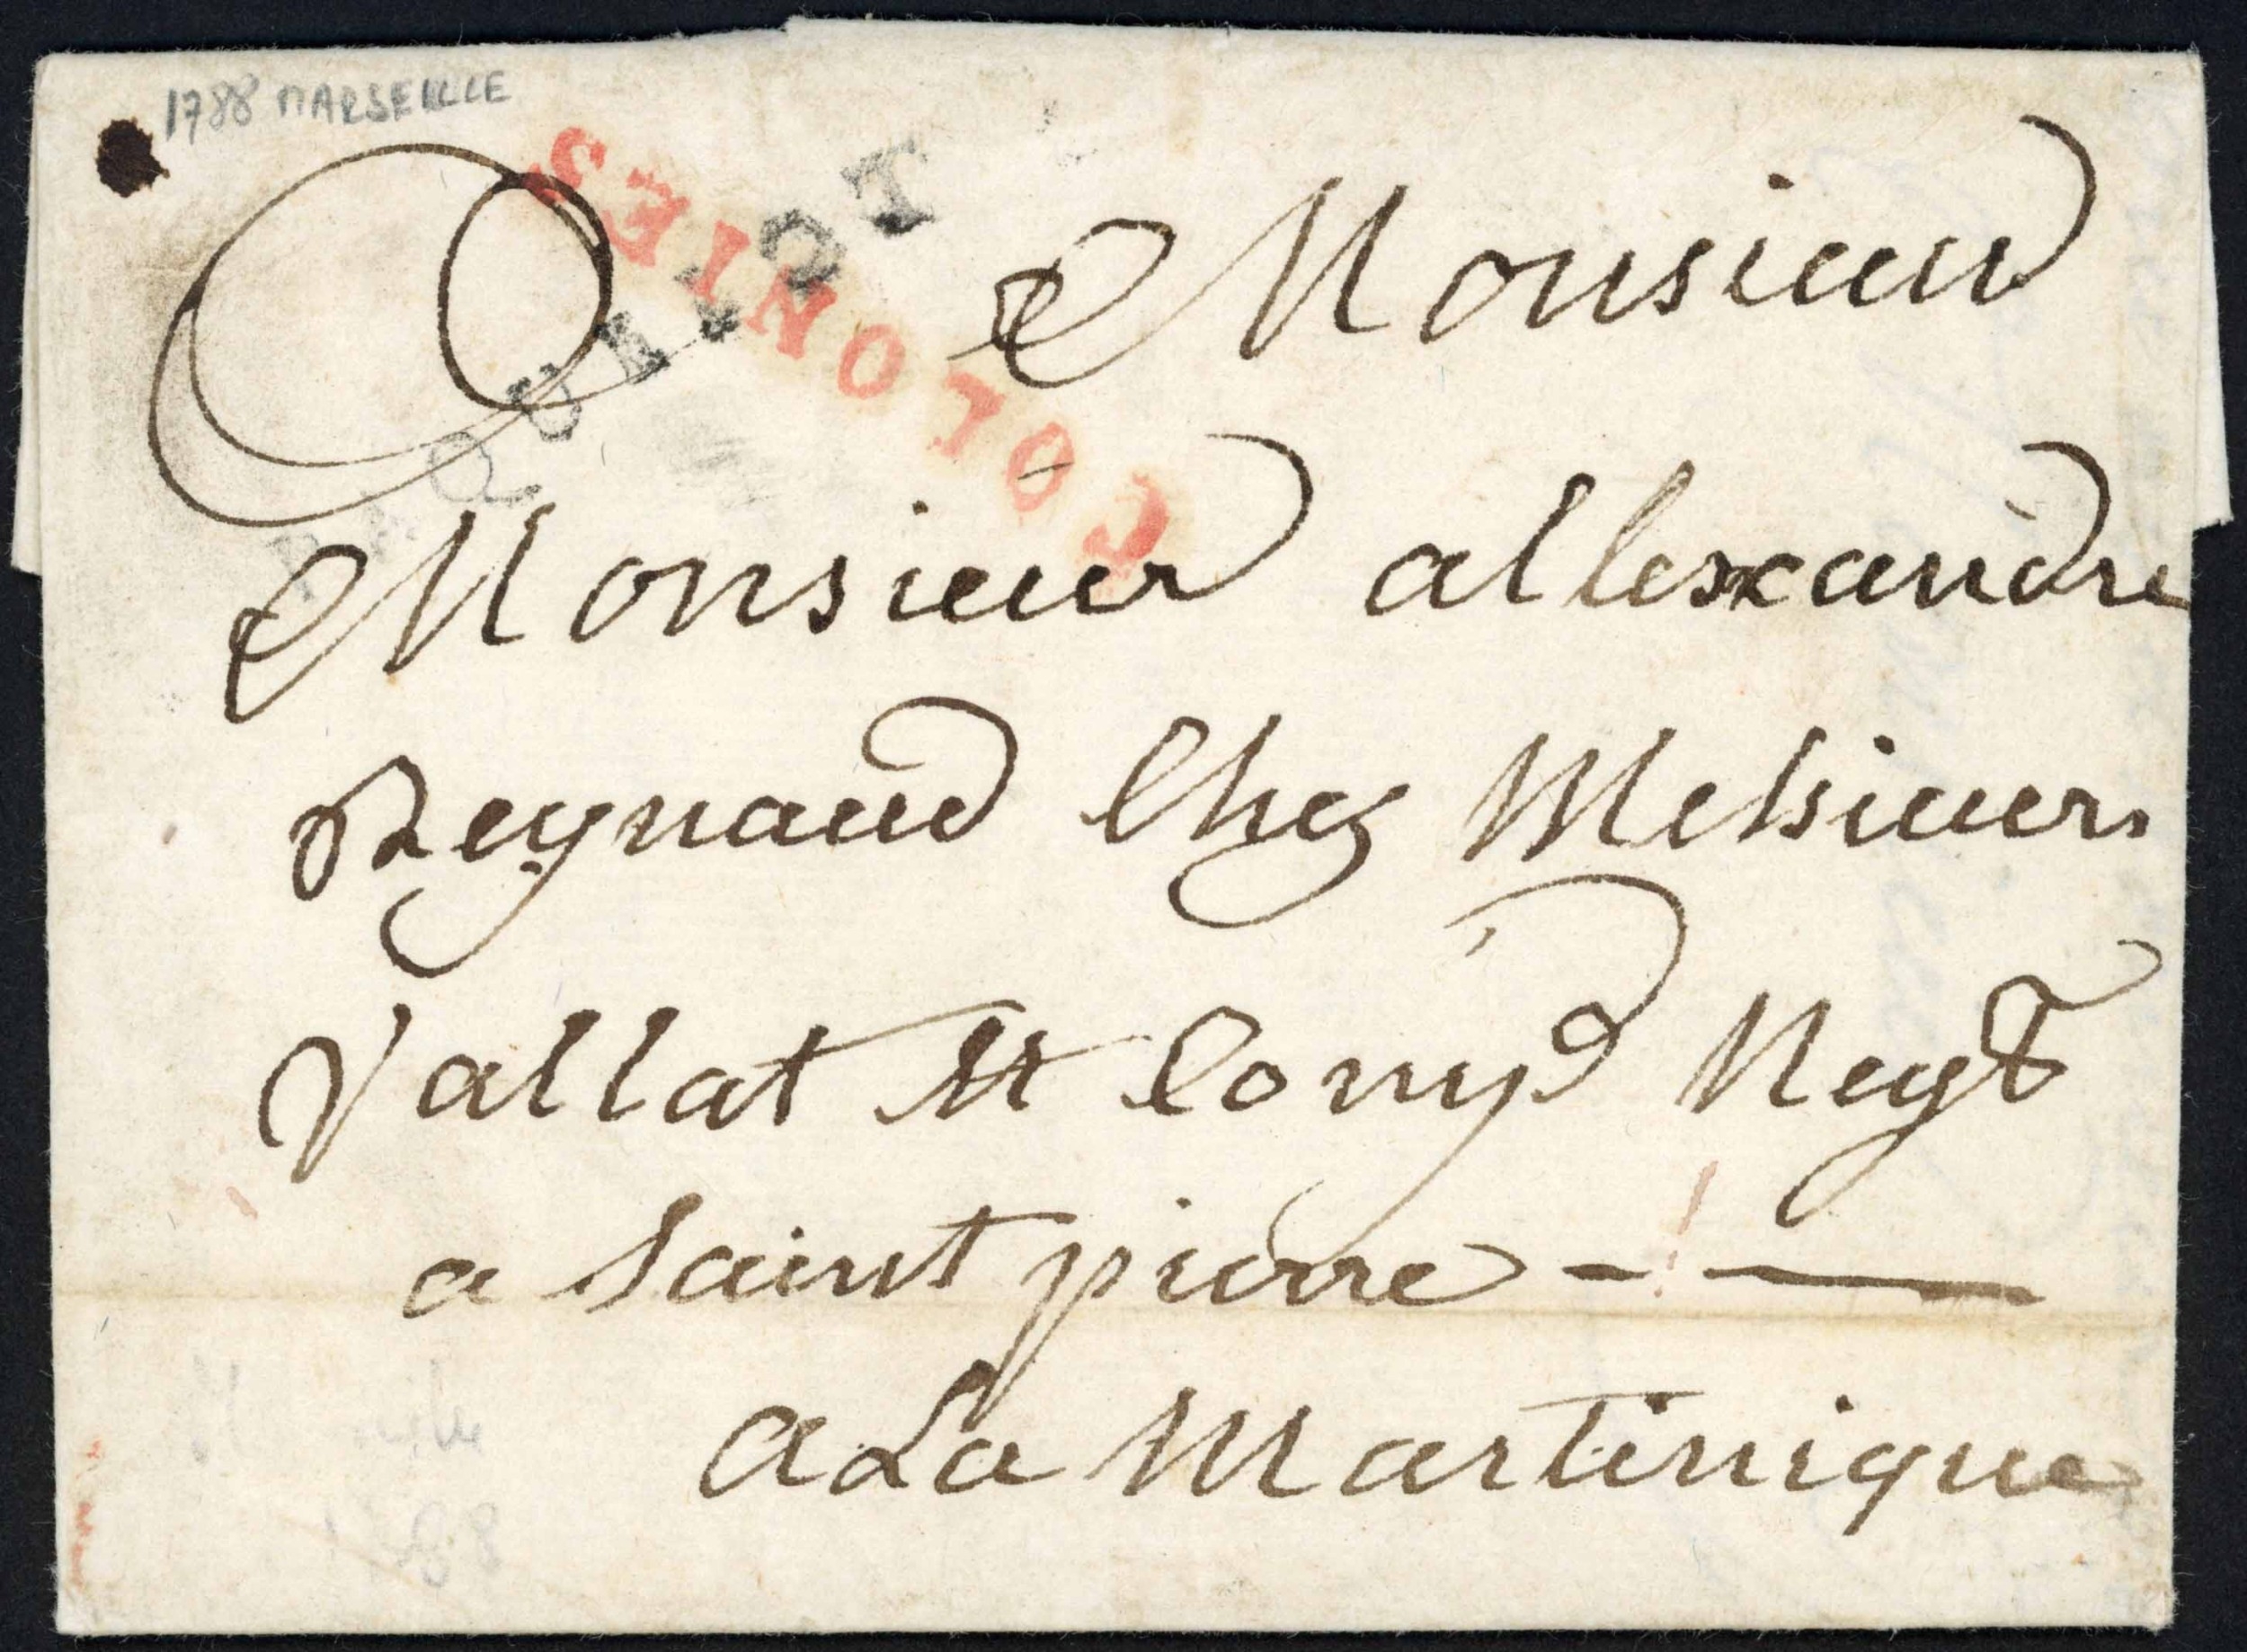 1788 MARSEILLE
COLONIES
PAQUEBOT
Monsieur
Monsieur allexandre
Reynaud Chez Messieurs
Vallat et Comp.e Negt
a Saint pierre
a La Martinique